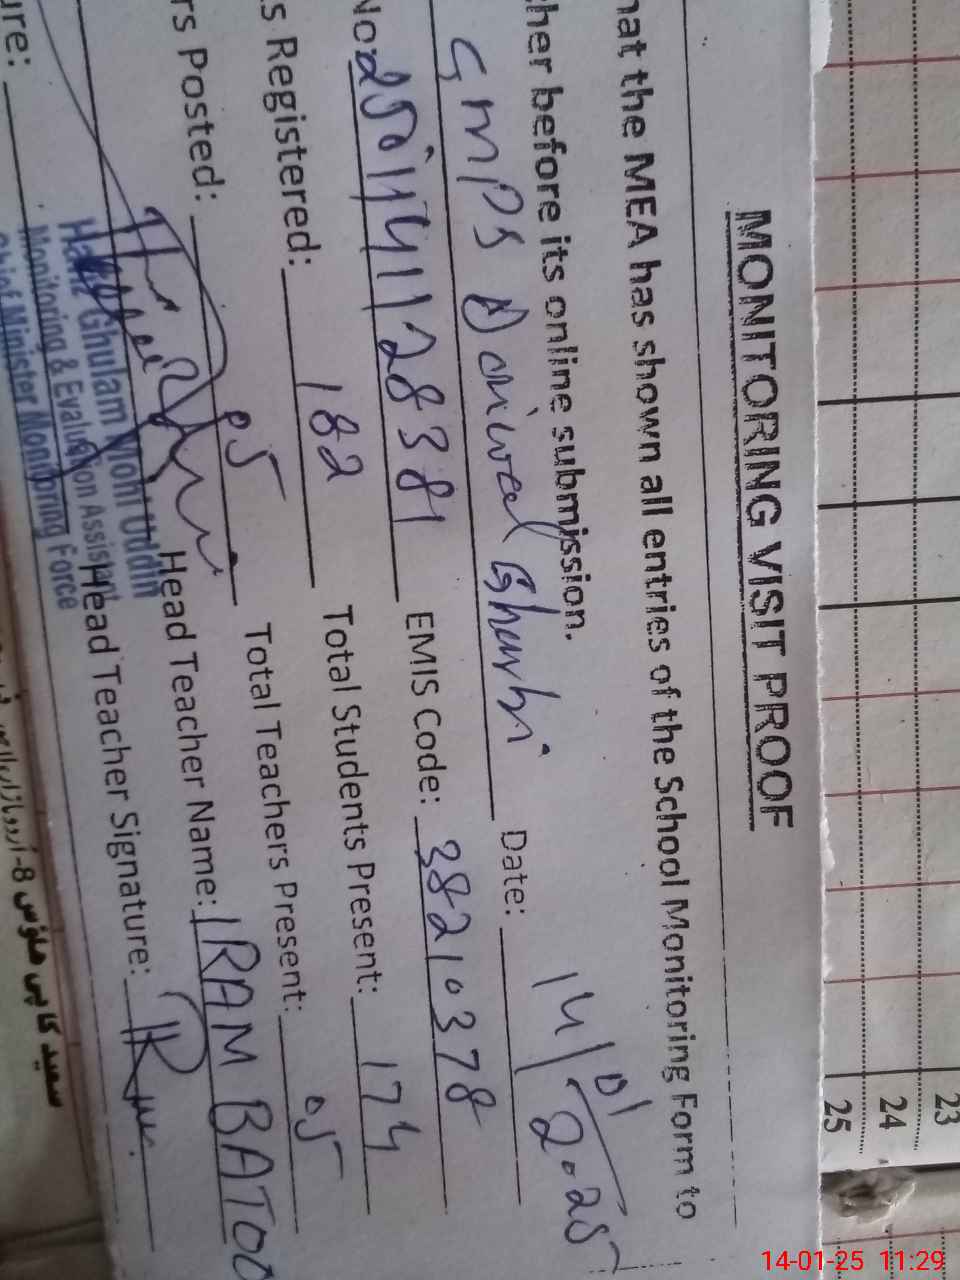 MONITORING VISIT PROOF
hat the MEA has shown all entries of the School Monitoring Form to
cher before its online submission.
GMPS Gharbi Date: 14/01/2025
No: EMIS Code: 38210378
s Registered: 182 Total Students Present: 174
rs Posted: 05 Total Teachers Present: 05
Head Teacher Name: IRAM BATOO
Hafiz Ghulam Mohi Uddin
Monitoring & Evaluation Assistant Head Teacher Signature:
Chief Minister Monitoring Force
ure:
23
24
25
14-01-25 11:29